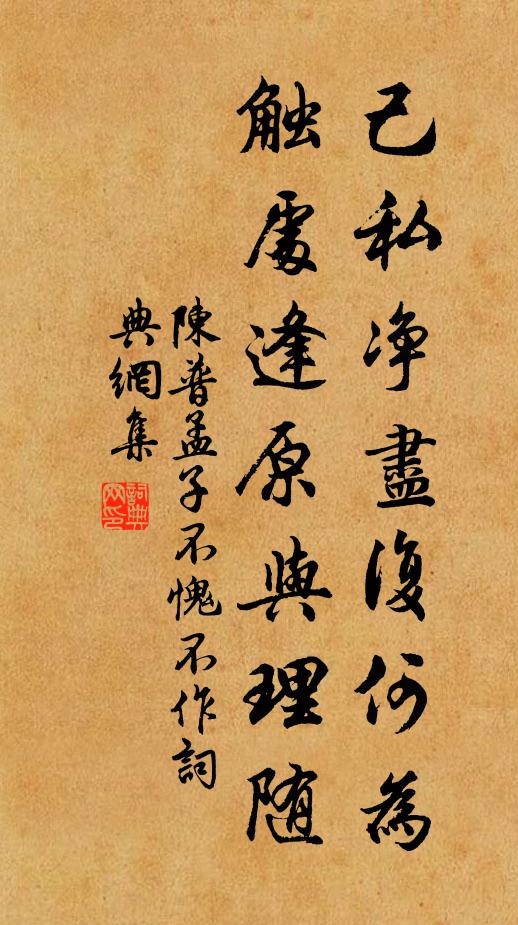 己私净盡復何為
触處逢原與理随
陳普孟子不愧不作詞
典網集
詞典
网印